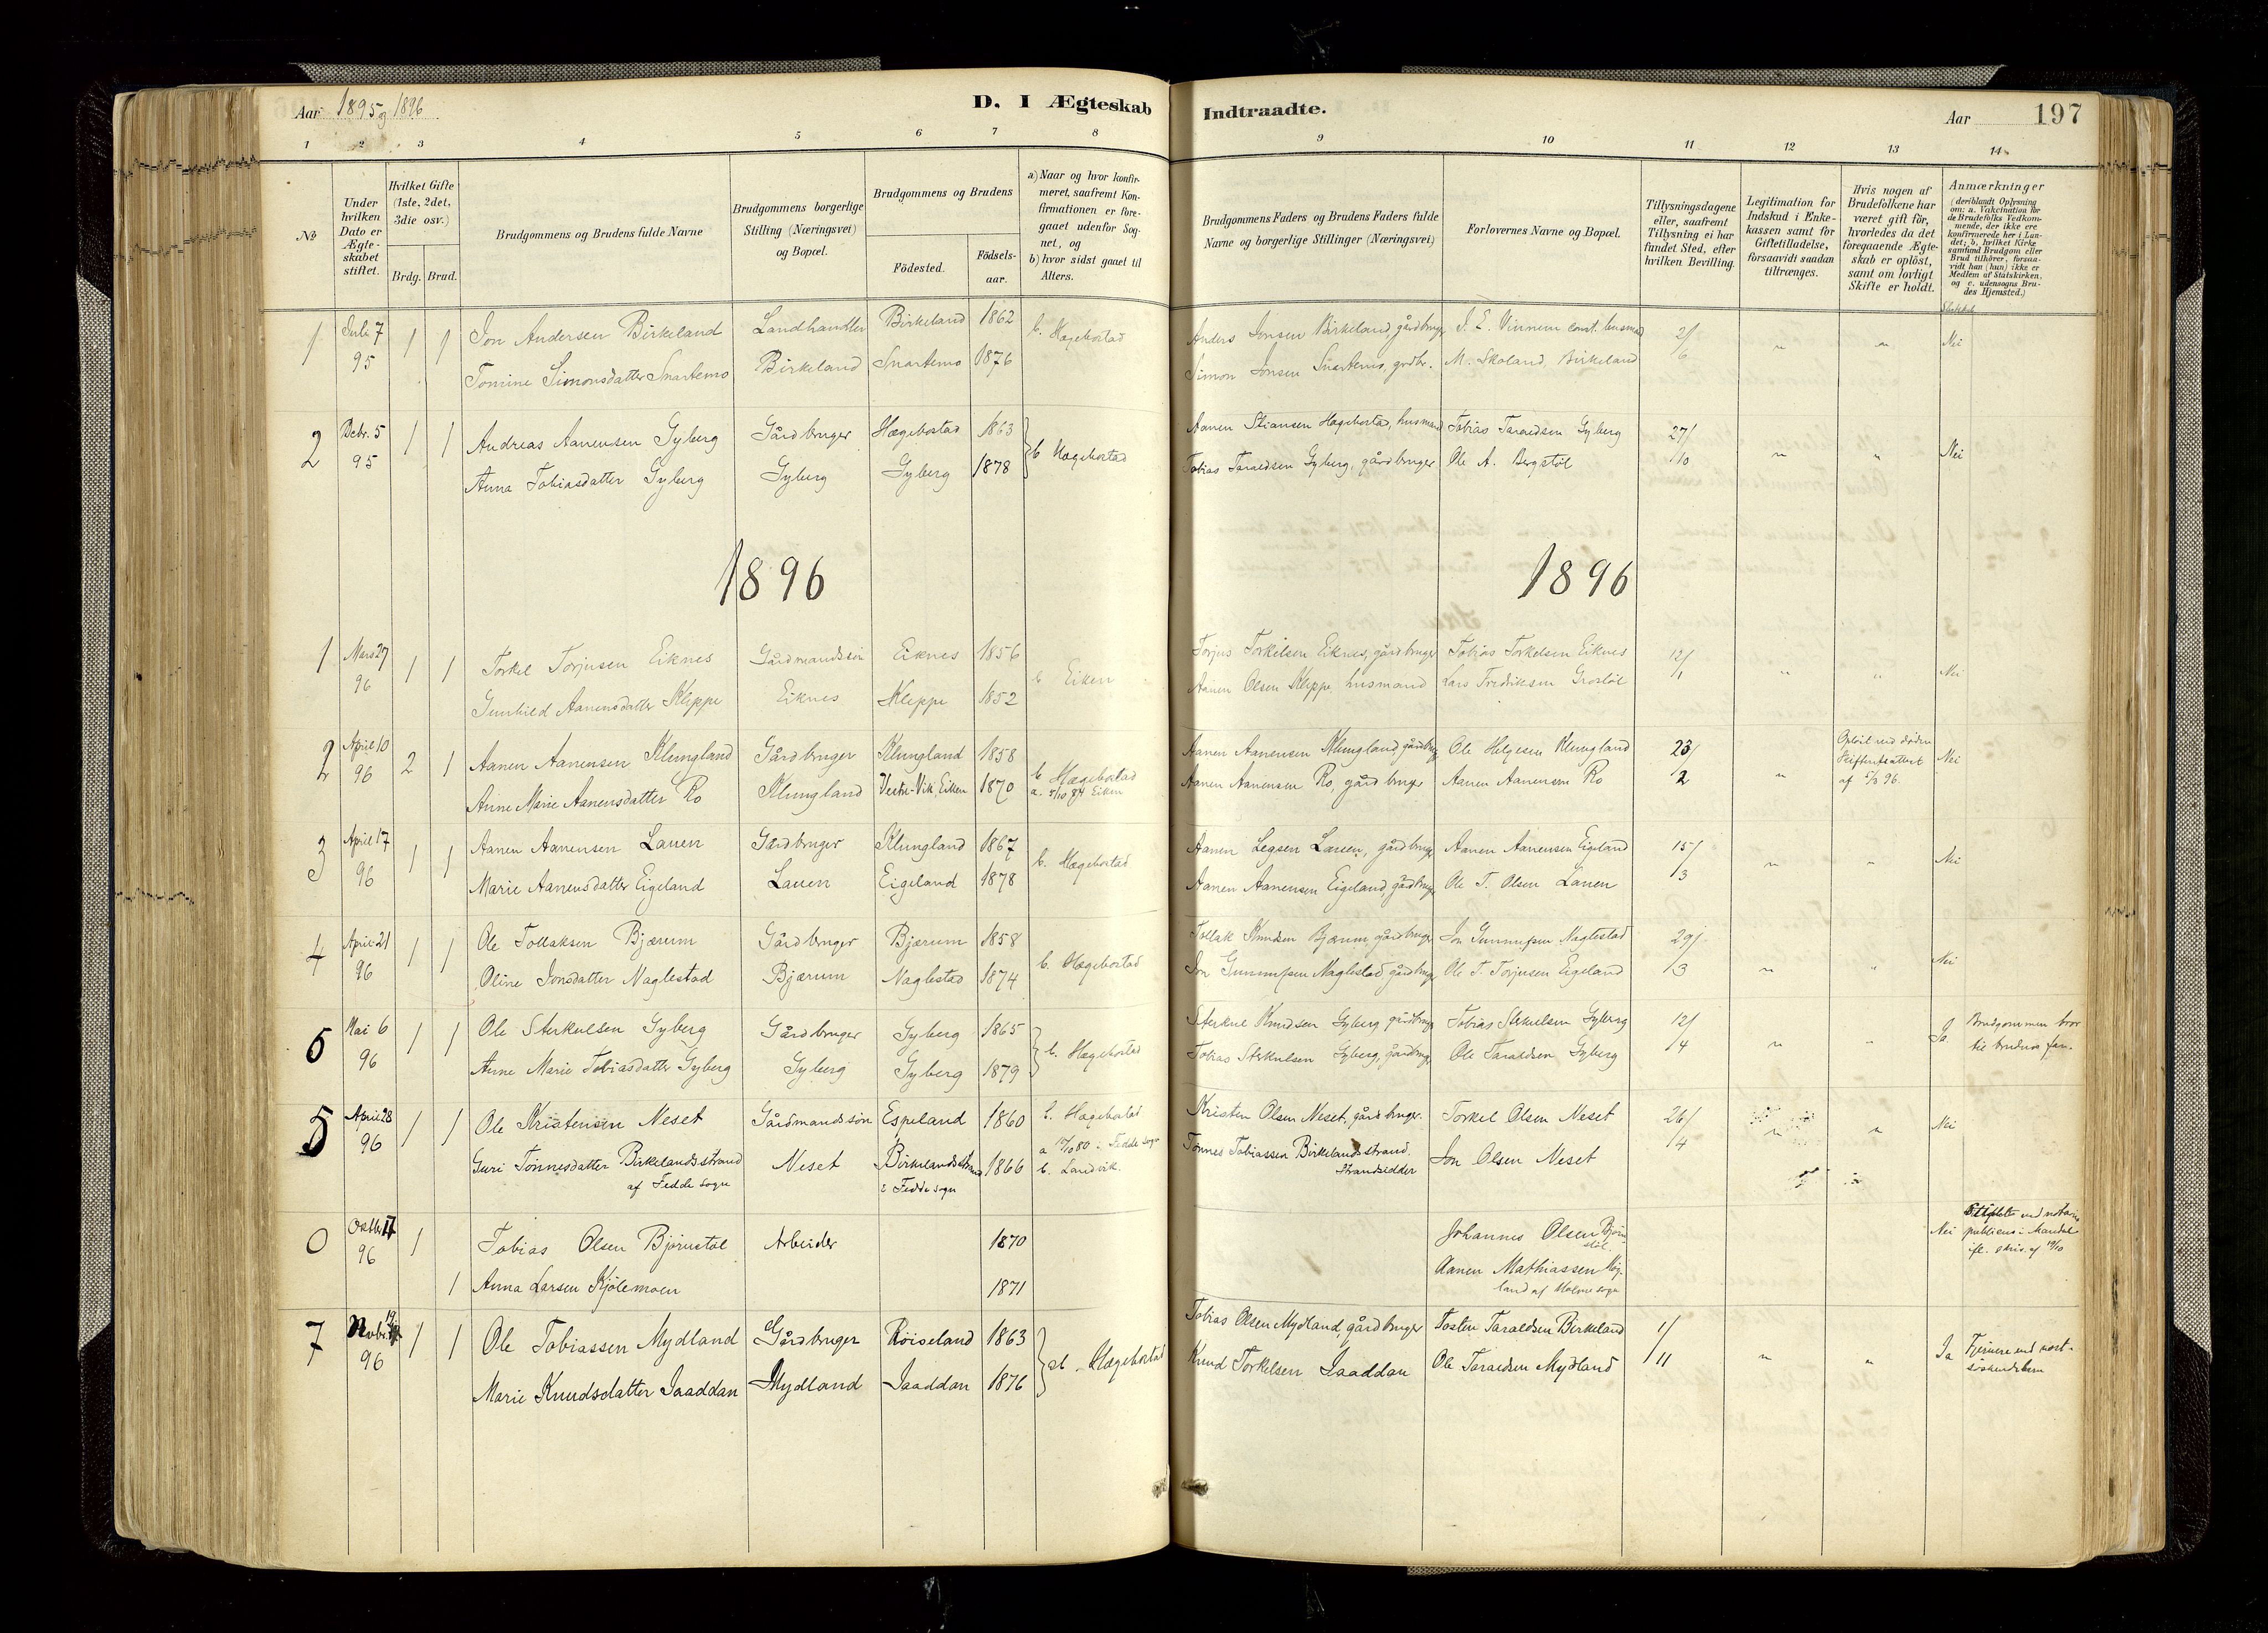 Aar 1895 og 1896
D. I Ægteskab
Indtraadte.
Aar
197
1 2 3 4 5 6 7 8 9 10 11 12 13 14
№
Under hvilken Dato er Ægteskabet stiftet.
Hvilket Gifte (1ste, 2det, 3die osv.)
Brdg. Brud.
Brudgommens og Brudens fulde Navne
Brudgommens borgerlige Stilling (Næringsvei) og Bopæl.
Brudgommens og Brudens
Födested.
Födsels-aar.
a) Naar og hvor konfirmeret, saafremt Konfirmationen er foregaaet udenfor Sognet, og
b) hvor sidst gaaet til Alters.
Brudgommens Faders og Brudens Faders fulde Navne og borgerlige Stillinger (Næringsvei)
Forlovernes Navne og Bopæl.
Tillysningsdagene eller, saafremt Tillysning ei har fundet Sted, efter hvilken Bevilling.
Legitimation for Indskud i Enkekassen samt for Giftetilladelse, forsaavidt saadan tiltrænges.
Hvis nogen af Brudefolkene har været gift för, hvorledes da det foregaaende Ægteskab er oplöst, samt om lovligt Skifte er holdt.
Anmærkninger (deriblandt Oplysning om: a. Vakcination for de Brudefolks Vedkommende, der ikke ere konfirmerede her i Landet; b. hvilket Kirkesamfund Brudgom eller Brud tilhörer, forsaavidt han (hun) ikke er Medlem af Statskirken, og c. udensogns Brudes Hjemsted.)
1 Juli 7 1 1 Jon Andersen Birkeland Landhandler Birkeland 1862 b. Hægebostad Anders Jonsen Birkeland, gårdbruger 2/6 " " Nei
95 Tomine Simonsdatter Snartemo Birkeland Snartemo 1876 Simon Jonsen Snartemo, grdbr. M. Skoland Birkeland
2 Decbr. 5 1 1 Andreas Aanensen Gyberg Gårdbruger Hægebostad 1863 b Hægebostad Aanen Stiansen Hægebostad, husmand Tobias Taraldsen Gyberg 27/10 " " Nei
95 Anna Tobiasdatter Gyberg Gyberg Gyberg 1878 Tobias Taraldsen Gyberg, gårdbruger Ole A. Bergstöl
1896 1896
1 Mars 27 1 1 Torkel Torjusen Eiknes Gårdmandssön Eiknes 1856 b Eiken Torjus Torkelsen Eiknes, gårdbruger Tobias Torkelsen Eiknes 12/1 " " Nei
96 Gunhild Aanensdatter Kleppe Eiknes Kleppe 1852 Aanen Olsen Kleppe, husmand Lars Fredriksen Grostöl
2 April 10 2 1 Aanen Aanensen Klungland Gårdbruger Klungland 1858 b Hægebostad Aanen Aanensen Klungland, gårdbrug Ole Helgesen Klungland 23/2 " Oplöst ved döden Skifteattest af 5/3 96. Nei
96 Anne Marie Aanensdatter Ro Klungland Vestre-Vik, Eiken 1870 a. 5/10 84 Eiken Aanen Aanensen Ro, gårdbruger Aanen Aanensen Ro
3 April 17 1 1 Aanen Aanensen Lauen Gårdbruger Klungland 1867 b. Hægebostad Aanen Legsen Lauen, gårdbruger Aanen Aanensen Eigeland 15/3 " " Nei
96 Marie Aanensdatter Eigeland Lauen Eigeland 1878 Aanen Aanensen Eigeland, gårdbruger Ole T. Olsen Lauen
4 April 21 1 1 Ole Tollaksen Bjærum Gårdbruger Bjærum 1858 b. Hægebostad Tollak Knudsen Bjærum, gårdbruger Jon Gunnufsen Naglestad 29/3 " " Nei
96 Oline Jonsdatter Naglestad Bjærum Naglestad 1874 Jon Gunnufsen Naglestad, gårdbruger Ole T. Torjusen Eigeland
6 Mai 6 1 1 Ole Sterkulsen Gyberg Gårdbruger Gyberg 1865 b. Hægebostad Sterkul Knudsen Gyberg gårdbrug Tobias Sterkulsen Gyberg 12/4 " " Ja Brudgommen bror til brudens far.
96 Anne Marie Tobiasdatter Gyberg Gyberg Gyberg 1879 Tobias Sterkulsen Gyberg, gårdbrug Ole Taraldsen Gyberg
5 April 28 1 1 Ole Kristensen Neset Gårdmandssön Espeland 1860 b. Hægebostad Kristen Olsen Neset, gårdbruger. Torkel Olsen Neset 26/4 " " Nei
96 Guri Tönnesdatter Birkelandsstrand af Fedde sogn Neset Birkelandsstrand i Fedde sogn 1866 b. Landvik. Tönnes Tobiassen Birkelandsstrand. Strandsidder Jon Olsen Neset
0 Oktbr 17 1 Tobias Olsen Bjørnstøl Arbeider 1870 Johannes Olsen Bjørnstøl. Nei Stiftet ved notarius publicus i Mandal ifl. skriv. af 19/10
96 1 Anna Larsen Kjölemoen 1871 Aanen Mathiassen Høyland af Holme sogn
7 Novbr. 19 1 1 Ole Tobiassen Mydland Gårdbruger Röiseland 1863 Hægebostad Tobias Olsen Mydland, gårdbruger Tosten Taraldsen Birkeland 1/11 " " Ja Fjernere end næstsöskendebarn
96 Marie Knudsdatter Jaaddan Mydland Jaaddan 1876 Knud Torkelsen Jaaddan Ole Taraldsen Mydland